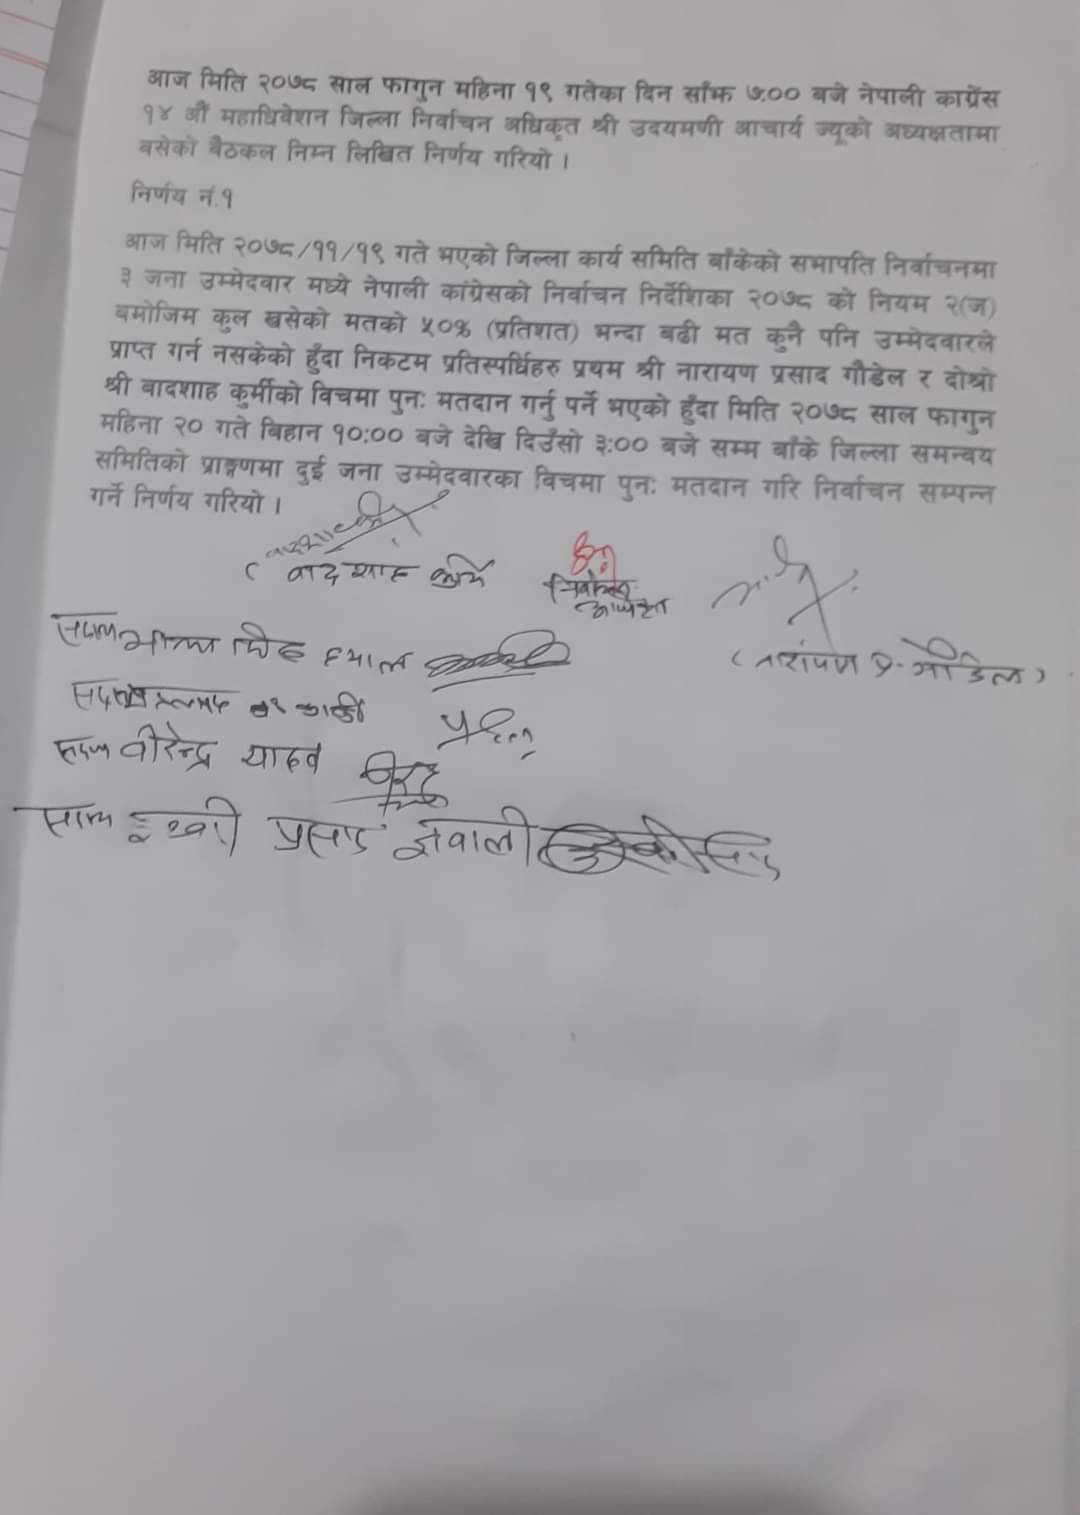 आज मिति २०७८ साल फागुन महिना १९ गतेका दिन साँझ ७:०० बजे नेपाली काग्रेंस
१४ औं महाधिवेशन जिल्ला निर्वाचन अधिकृत श्री उदयमणी आचार्य ज्यूको अध्यक्षतामा
बसेको बैठकल निम्न लिखित निर्णय गरियो ।
निर्णय नं.१
आज मिति २०७८/११/१९ गते भएको जिल्ला कार्य समिति बाँकेको सभापति निर्वाचनमा
३ जना उम्मेदवार मध्ये नेपाली कांग्रेसको निर्वाचन निर्देशिका २०७८ को नियम २(ज)
बमोजिम कुल खसेको मतको ५०% (प्रतिशत) भन्दा बढी मत कुनै पनि उम्मेदवारले
प्राप्त गर्न नसकेको हुँदा निकटम प्रतिस्पर्धिहरु प्रथम श्री नारायण प्रसाद गौडेल र दोश्रो
श्री बादशाह कुर्मीको विचमा पुनः मतदान गर्नु पर्ने भएको हुँदा मिति २०७८ साल फागुन
महिना २० गते बिहान १०:०० बजे देखि दिउँसो ३:०० बजे सम्म बाँके जिल्ला समन्वय
समितिको प्राङ्गणमा दुई जना उम्मेदवारका विचमा पुनः मतदान गरि निर्वाचन सम्पन्न
गर्ने निर्णय गरियो ।
( बादशाह कुर्मि
(नारायण प्र. गौडेल)
वीरेन्द्र यादव
प्रसाद ज्ञवाली